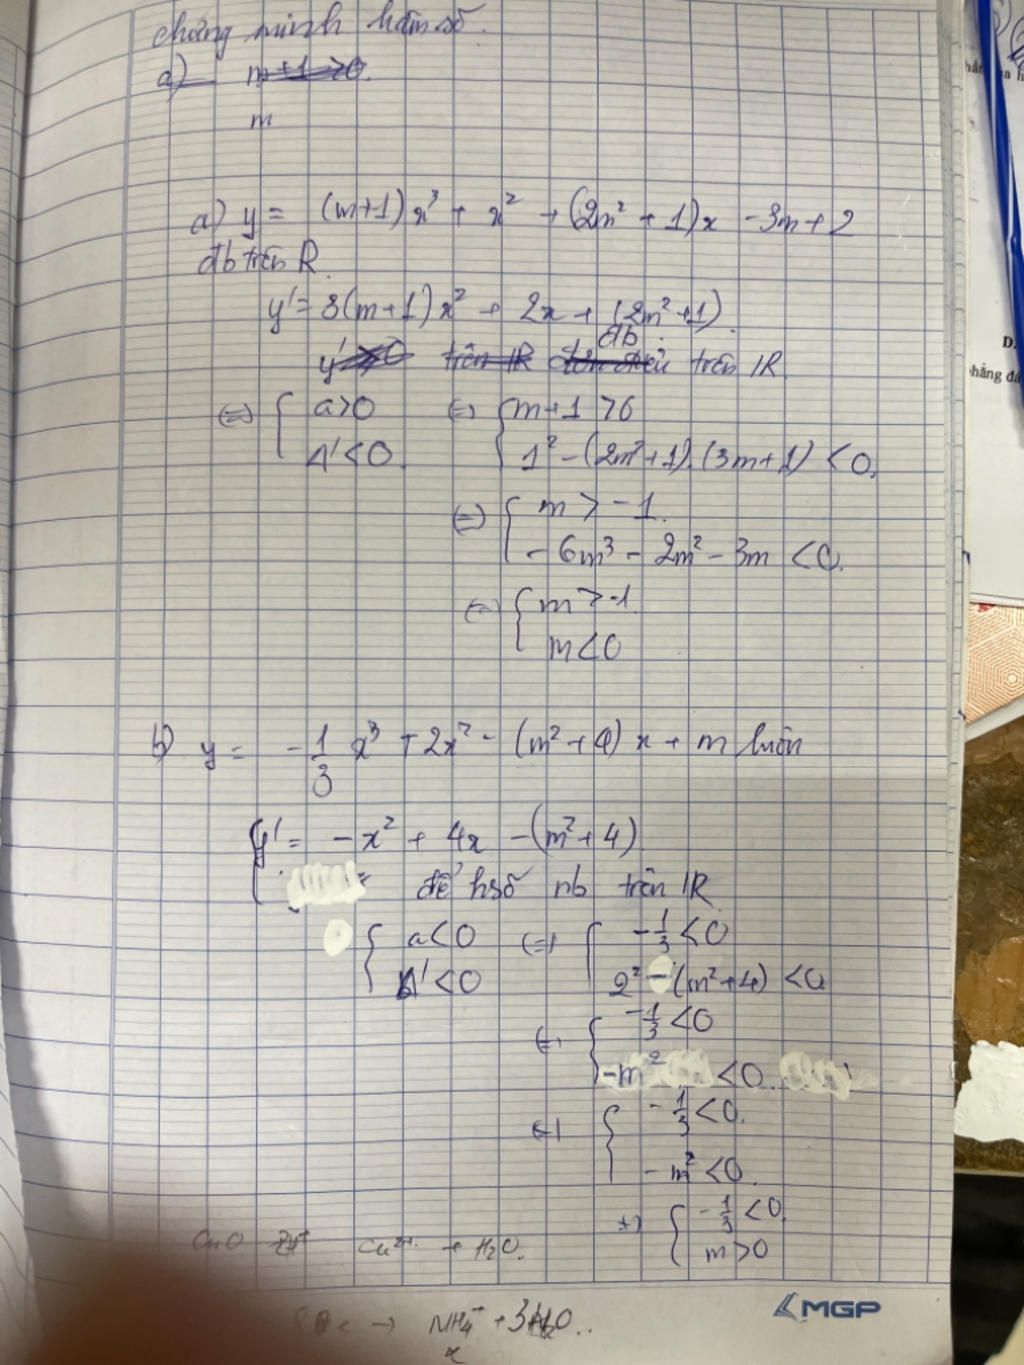 chứng minh hàm số.
a) m+1>0
m
a) y = (m+1)x³ + x² + (2m² + 1)x - 3m + 2
đb trên R.
y' = 3(m+1)x² + 2x + (2m²+1).
đb
trên IR trên IR
(=) { a>0 (=) { m+1 >0
Δ'<0. 1² - (2m²+1).(3m+1) <0.
(=) { m > -1.
- 6m³ - 2m² - 3m <0.
(=) { m > -1
m<0
b) y = -1/3 x³ + 2x² - (m² + 4) x + m luôn
{ y' = -x² + 4x - (m² + 4)
để hsố nb trên IR
{ a<0 (=) { -1/3 <0
Δ' <0 2² - (m²+4) <0
(=) { -1/3 <0
-m² <0.
(=) { -1/3 <0.
- m² <0.
{ -1/3 <0.
m>0
CuO Cu²⁺ + H₂O.
→ NH₄⁺ + 3H₂O..
MGP
D.